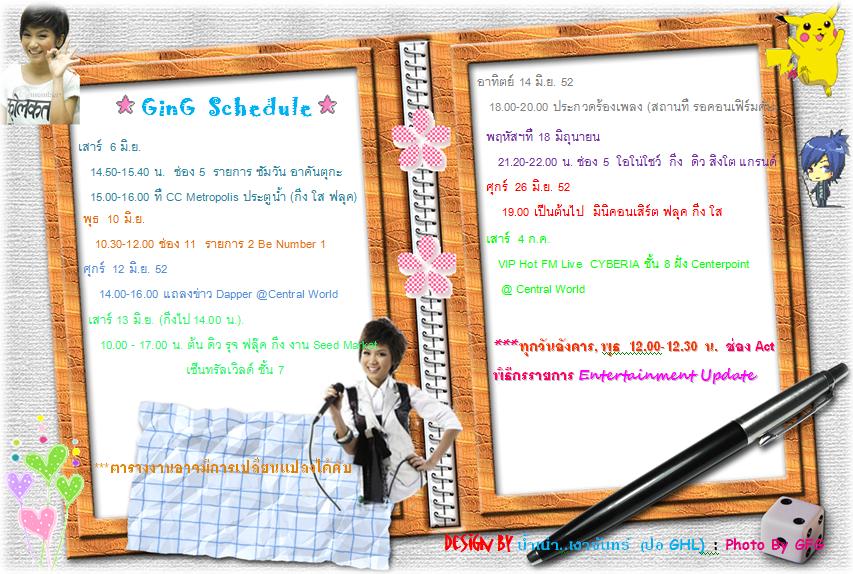 GinG Schedule
เสาร์ 6 มิ.ย.
14.50-15.40 น. ช่อง 5 รายการ ชัมวัน อาคันตุกะ
15.00-16.00 ที่ CC Metropolis ประตูน้ำ (กิ่ง ใส ฟลุค)
พุธ 10 มิ.ย.
10.30-12.00 ช่อง 11 รายการ 2 Be Number 1
ศุกร์ 12 มิ.ย. 52
14.00-16.00 แถลงข่าว Dapper @Central World
เสาร์ 13 มิ.ย. (กิ่งไป 14.00 น.).
10.00 - 17.00 น. ต้น ดิว รุจ ฟลุ๊ค กิ่ง งาน Seed Market
เซ็นทรัลเวิลด์ ชั้น 7
***ตารางงานอาจมีการเปลี่ยนแปลงได้คับ
อาทิตย์ 14 มิ.ย. 52
18.00-20.00 ประกวดร้องเพลง (สถานที่ รอคอนเฟิร์ม
พฤหัสฯที่ 18 มิถุนายน
21.20-22.00 น. ช่อง 5 โอโน่โชว์ กิ่ง ดิว สิงโต แกรนด์
ศุกร์ 26 มิ.ย. 52
19.00 เป็นต้นไป มินิคอนเสิร์ต ฟลุค กิ่ง ใส
เสาร์ 4 ก.ค.
VIP Hot FM Live CYBERIA ชั้น 8 ฝั่ง Centerpoint
@ Central World
***ทุกวันอังคาร, พุธ 12.00-12.30 น. ช่อง Act
พิธีกรรายการ Entertainment Update
DESIGN BY น้ำเน่า..เงาจันทร์ (ปอ GHL) : Photo By GFG